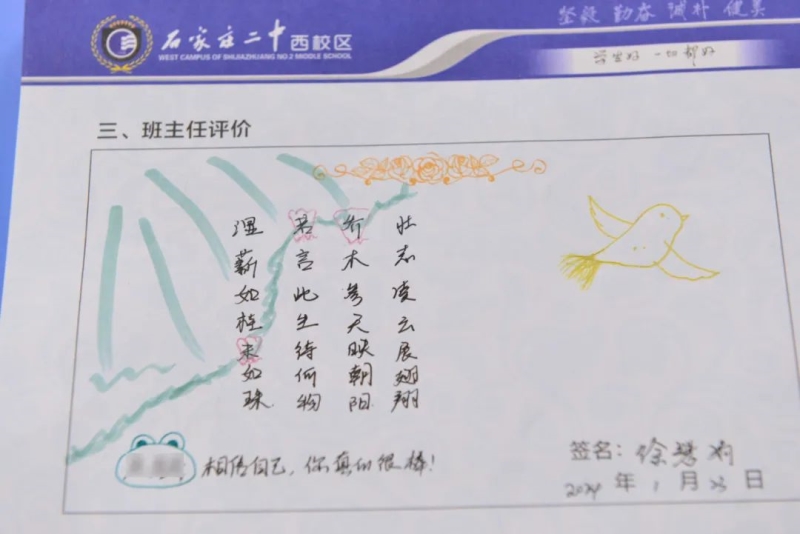 石家庄二中西校区
WEST CAMPUS OF SHIJIAZHUANG NO.2 MIDDLE SCHOOL
坚毅 勤奋 诚朴 健美
学生好 一切都好
三、班主任评价
壮志凌云展翅翔
乔木参天映朝阳
若言此生待何物
湿薪如桂米如珠
相信自己，你真的很棒！
签名：徐慧
2024年1月23日